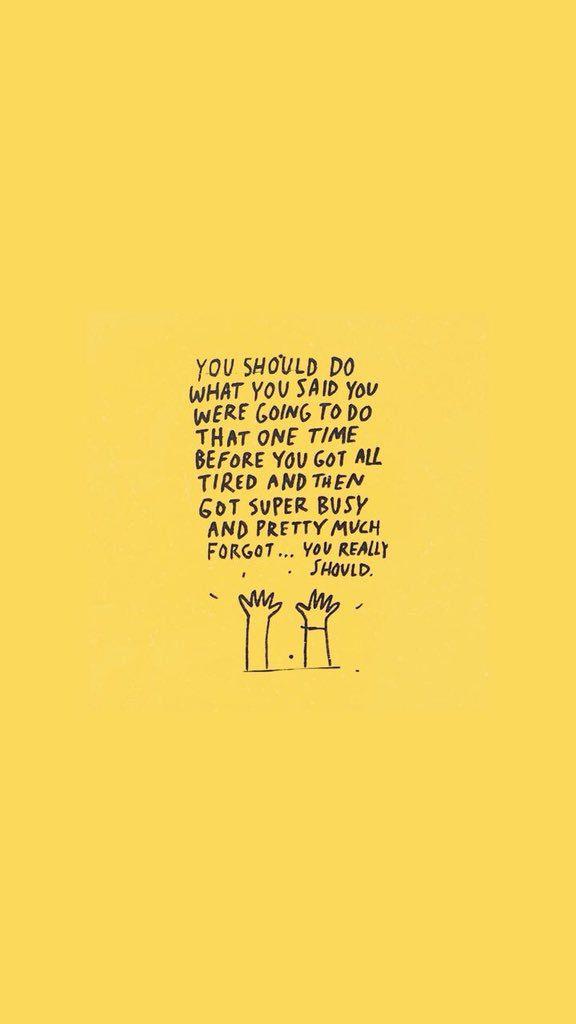 YOU SHOULD DO
WHAT YOU SAID YOU
WERE GOING TO DO
THAT ONE TIME
BEFORE YOU GOT ALL
TIRED AND THEN
GOT SUPER BUSY
AND PRETTY MUCH
FORGOT... YOU REALLY
SHOULD.